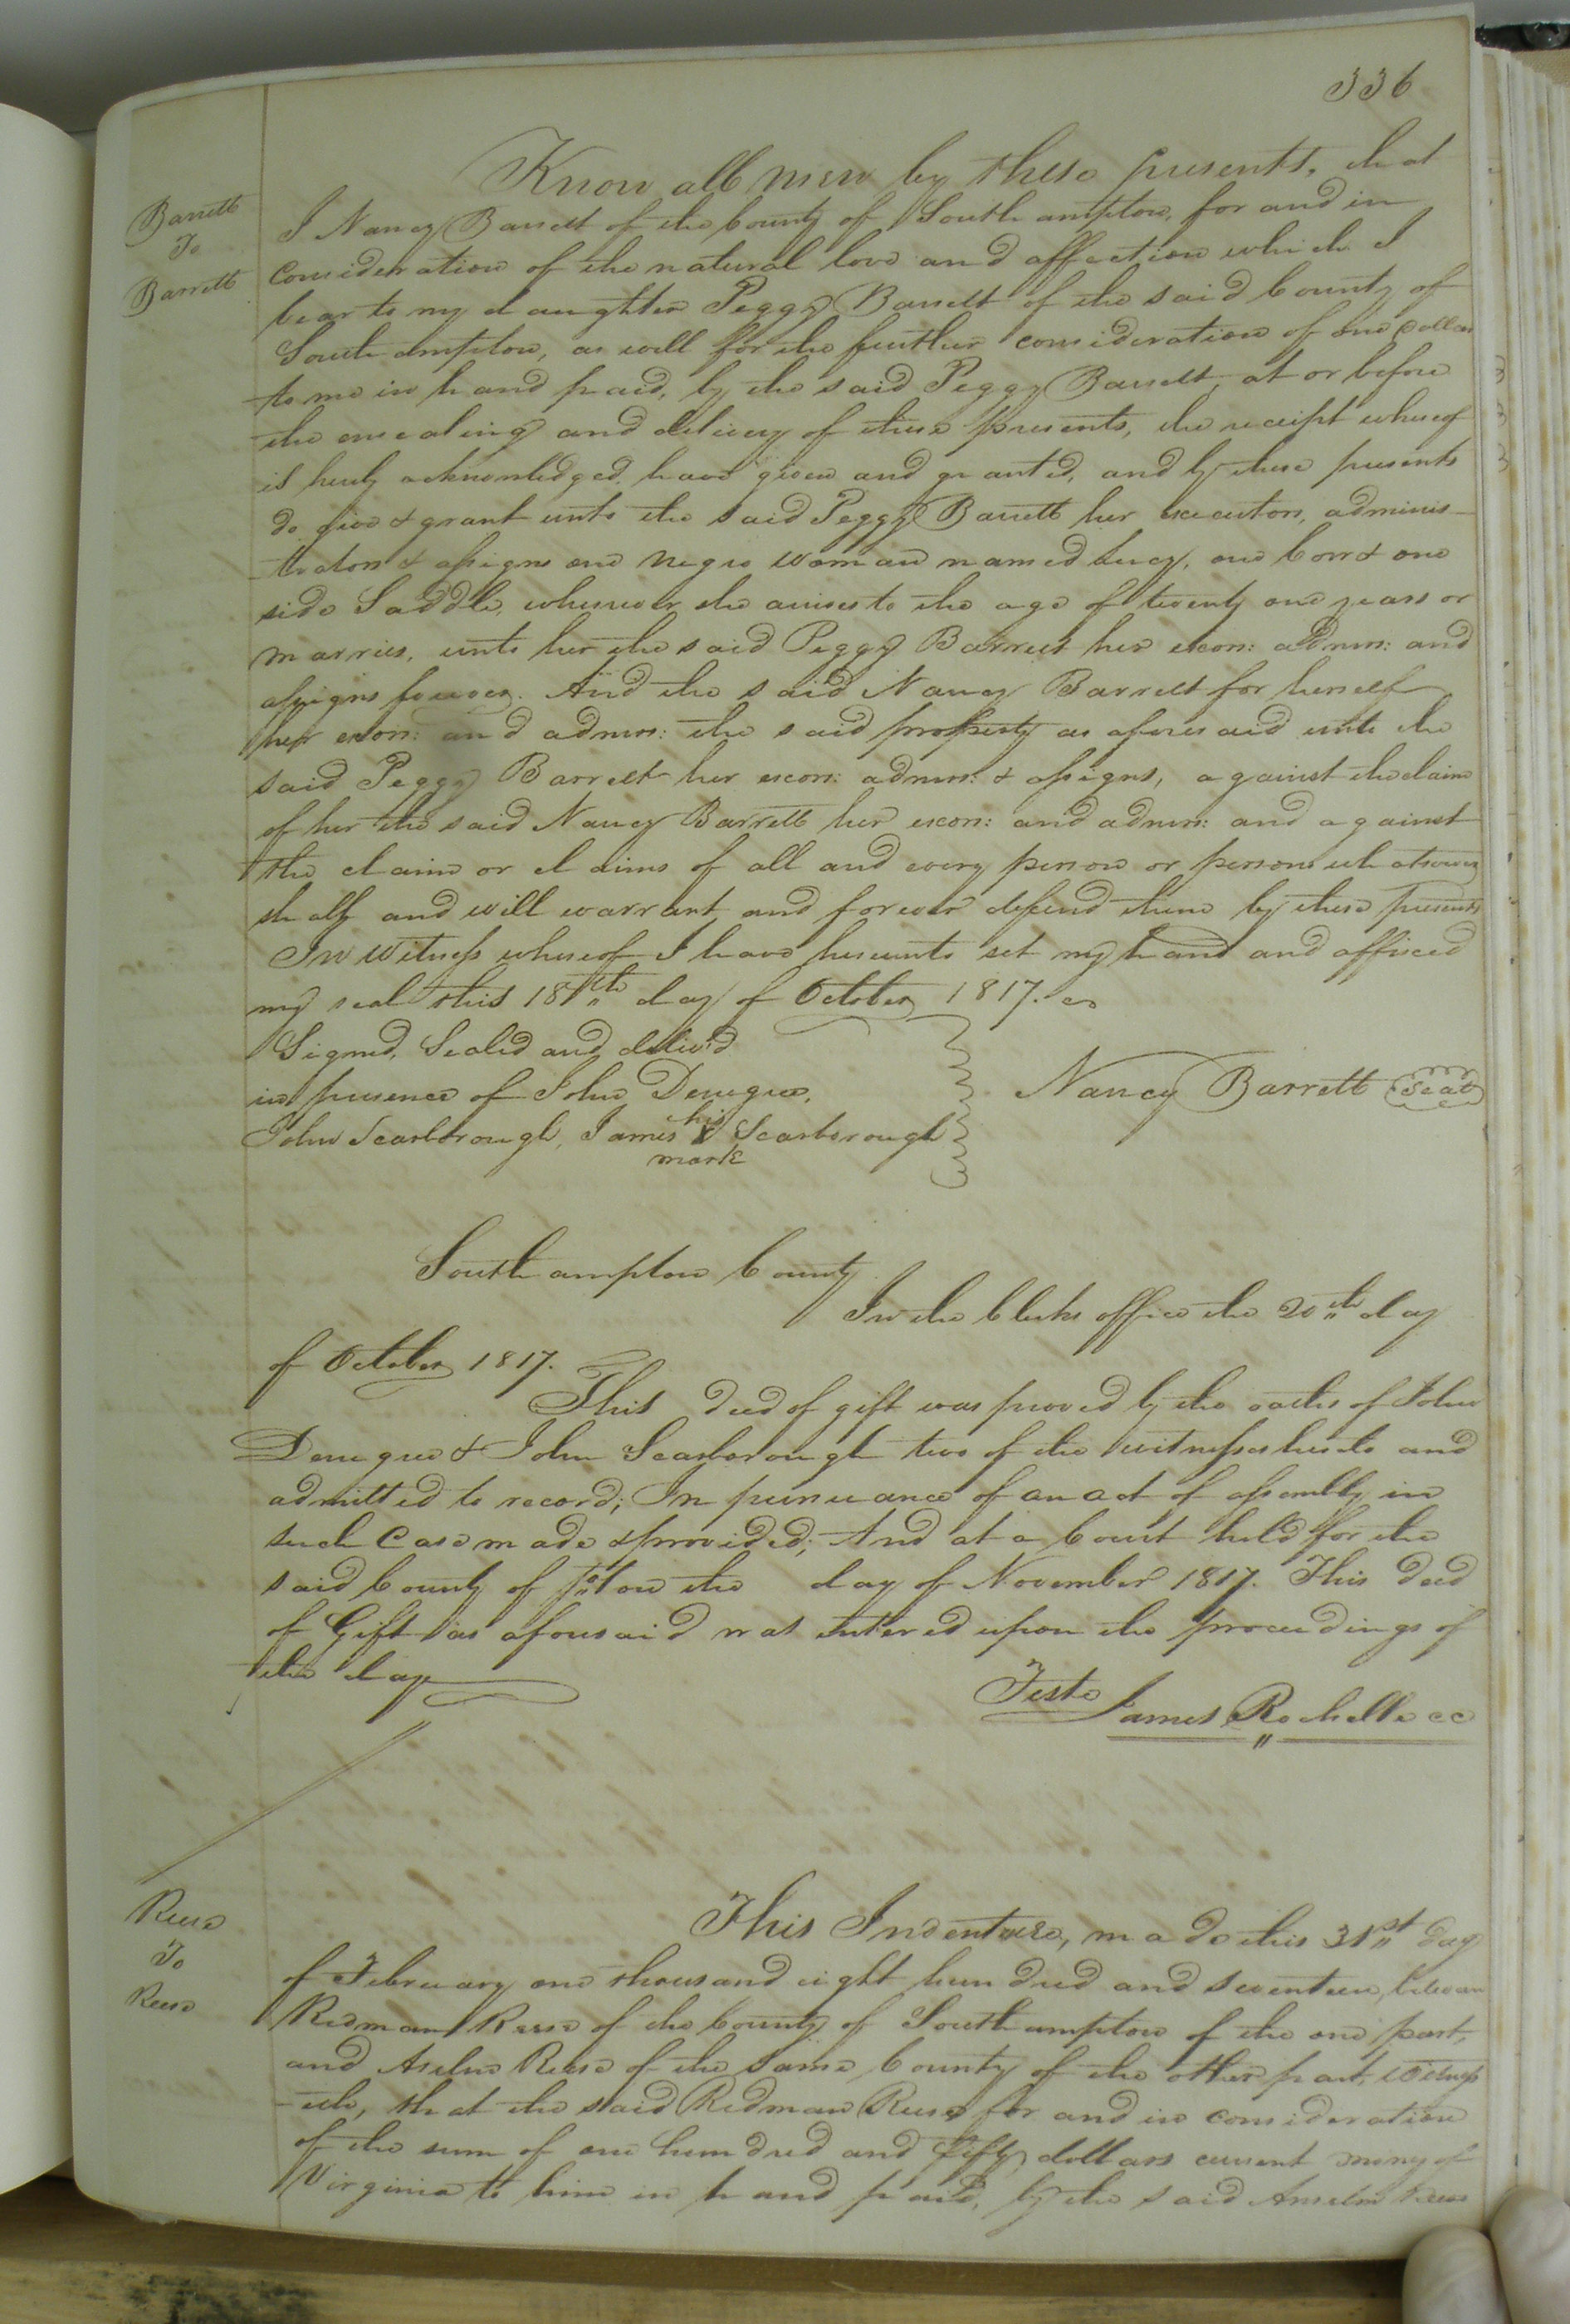 336
Know all men by these presents, that
Barrett
To
Barrett
I Nancy Barrett of the County of Southampton, for and in
consideration of the natural love and affection which I
bear to my daughter Peggy Barrett of the said County of
Southampton, as well for the further consideration of one dollar
to me in hand paid, by the said Peggy Barrett, at or before
the ensealing and delivery of these presents, the receipt whereof
is hereby acknowledged, have given and granted, and by these presents
do give & grant unto the said Peggy Barrett her executors, adminis-
trators & assigns one negro woman named Lucy, one Cow & one
side Saddle, whenever she arives to the age of twenty one years or
marries, unto her the said Peggy Barrett her exors: admrs: and
assigns forever. And the said Nancy Barrett for herself
her exors: and admrs: the said property as aforesaid unto the
said Peggy Barrett her exors: admrs: & assigns, against the claim
of her the said Nancy Barrett her exors: and admrs: and against
the claim or claims of all and every person or persons whatsoever
shall and will warrant and forever defend them by these presents
In Witness whereof I have hereunto set my hand and affixed
my seal this 18th day of October 1817.
Signed, Sealed and deliv'd
in presence of John Denegre,
Nancy Barrett Seal
John Scarborough, James his X mark Scarborough
Southampton County
In the Clerks office the 20th day
of October 1817.
This deed of gift was proved by the oaths of John
Denegre & John Scarborough two of the witnesses hereto and
admitted to record; In pursuance of an act of assembly in
such Case made & provided; And at a Court held for the
said County of So:ton the day of November 1817. This deed
of Gift as aforesaid was entered upon the proceedings of
the day
Teste
James Rochelle CC
Reese
To
Reese
This Indenture, made this 31st day
of February one thousand eight hundred and seventeen, between
Redman Reese of the County of Southampton of the one part,
and Anselm Reese of the same County of the other part, witness
-eth, that the said Redman Reese for and in consideration
of the sum of one hundred and fifty dollars current money of
Virginia to him in hand paid, by the said Anselm Reese